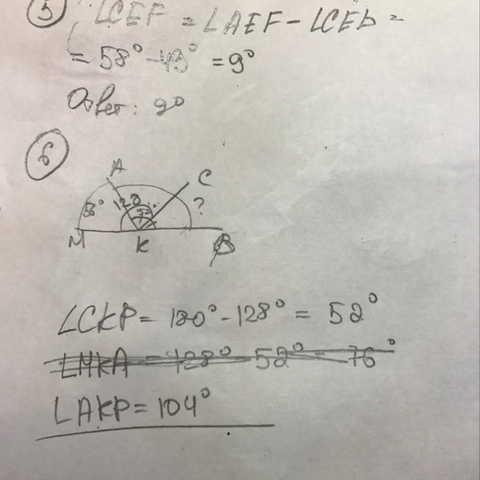 5) ∠CEF = ∠AEF - ∠CED =
= 58° - 49° = 9°
Ответ: 9°
6
A
C
128
?
M
K
∠CKP = 180° - 128° = 52°
∠MKA = 128° - 52° = 76°
∠AKP = 104°